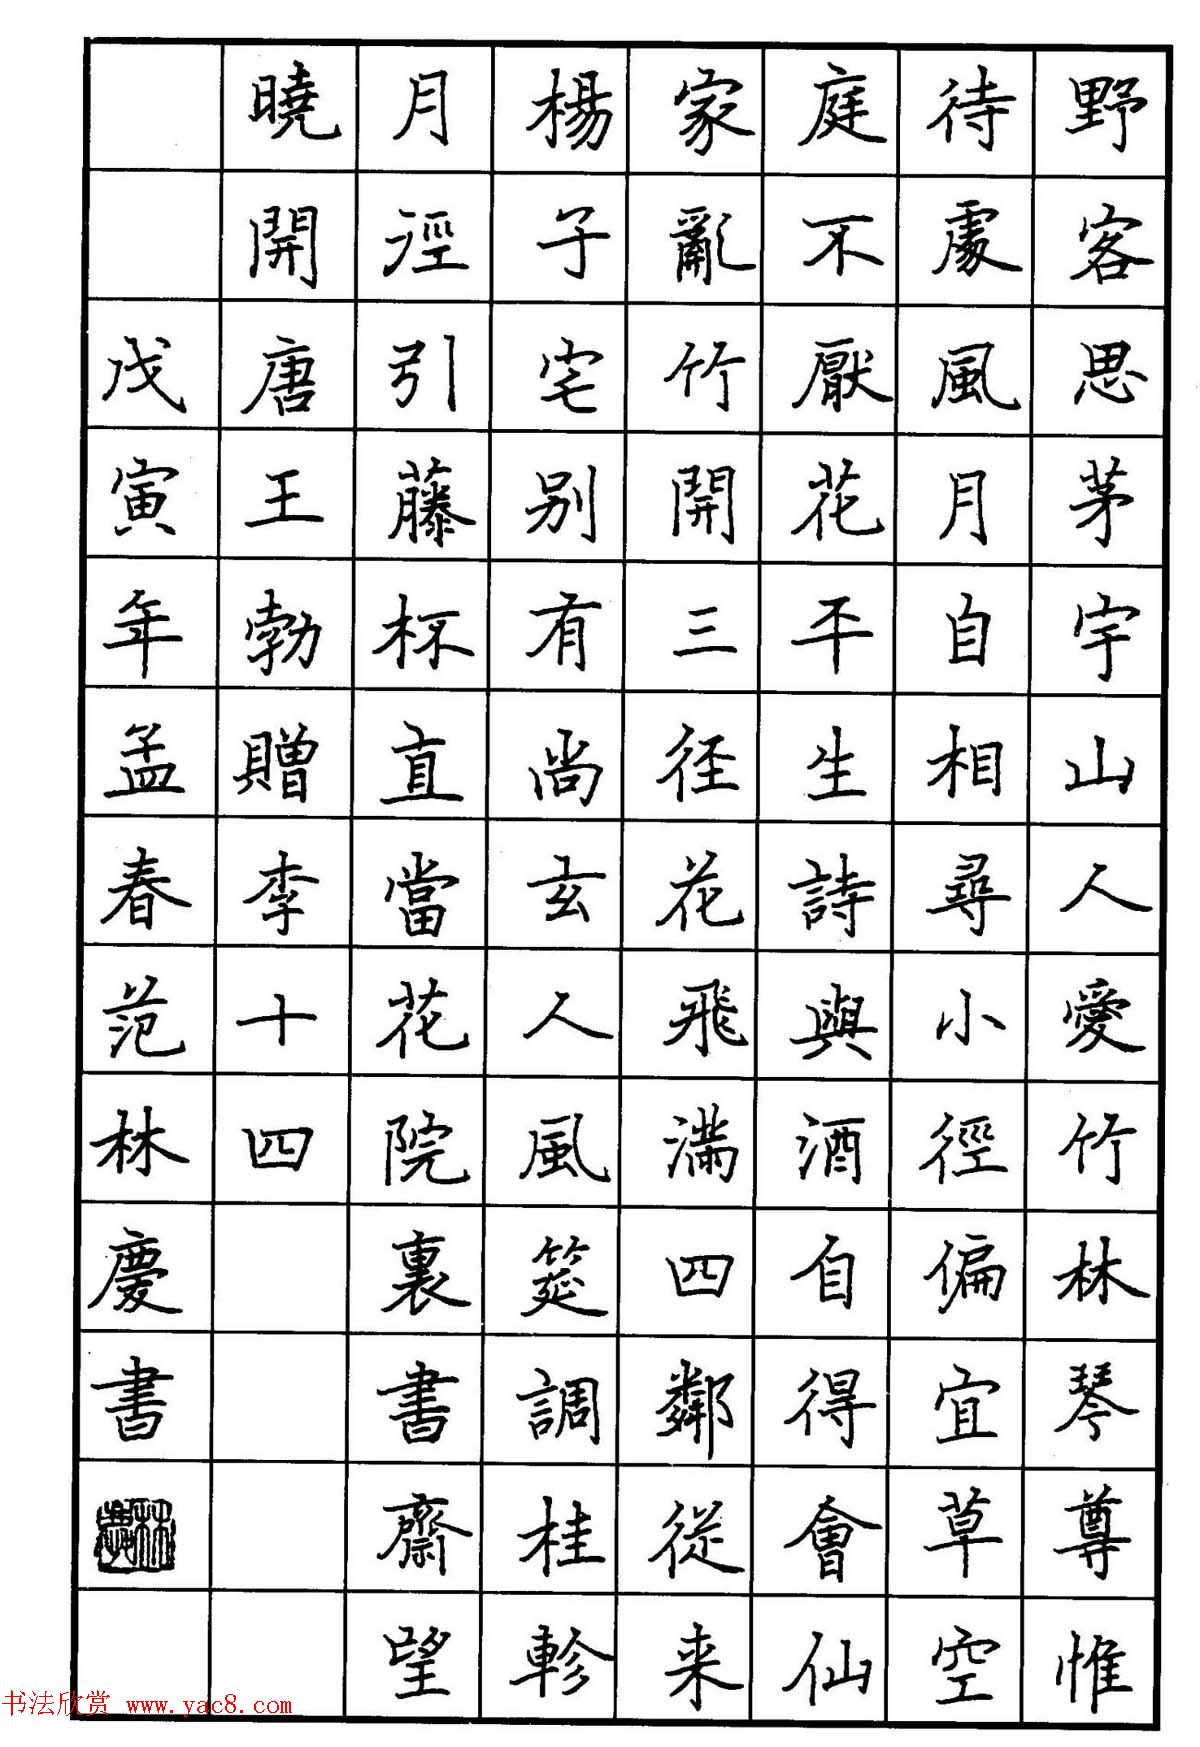 野客思茅宇山人愛竹林琴尊惟
待處風月自相尋小徑偏宜草空
庭不厭花平生詩與酒自得會仙
家亂竹開三径花飛滿四鄰從来
楊子宅别有尚玄人風筵調桂軫
月淫引藤杯直當花院裏書齋望
曉開唐王勃贈李十四
戊寅年孟春范林慶書
林慶
书法欣赏 www.yac8.com